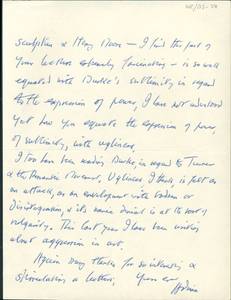 sculpture & Henry Moore — I find this part of
your lecture extremely fascinating — is so well
equated with Burke's sublimity in regard
to the expression of power, I have not understood
yet how you equate the expression of power,
of sublimity, with ugliness.
I too have been reading Burke, in regard to Turner
& the Romantic Movement. Ugliness I think, is felt as
an attack, as an envelopment with Sodom or
Disintegration, & its name denial is at the root of
vulgarity. This last year I have been writing
about aggression in art.
Again many thanks for so interesting &
stimulating a lecture,
Yours ever
Adrian